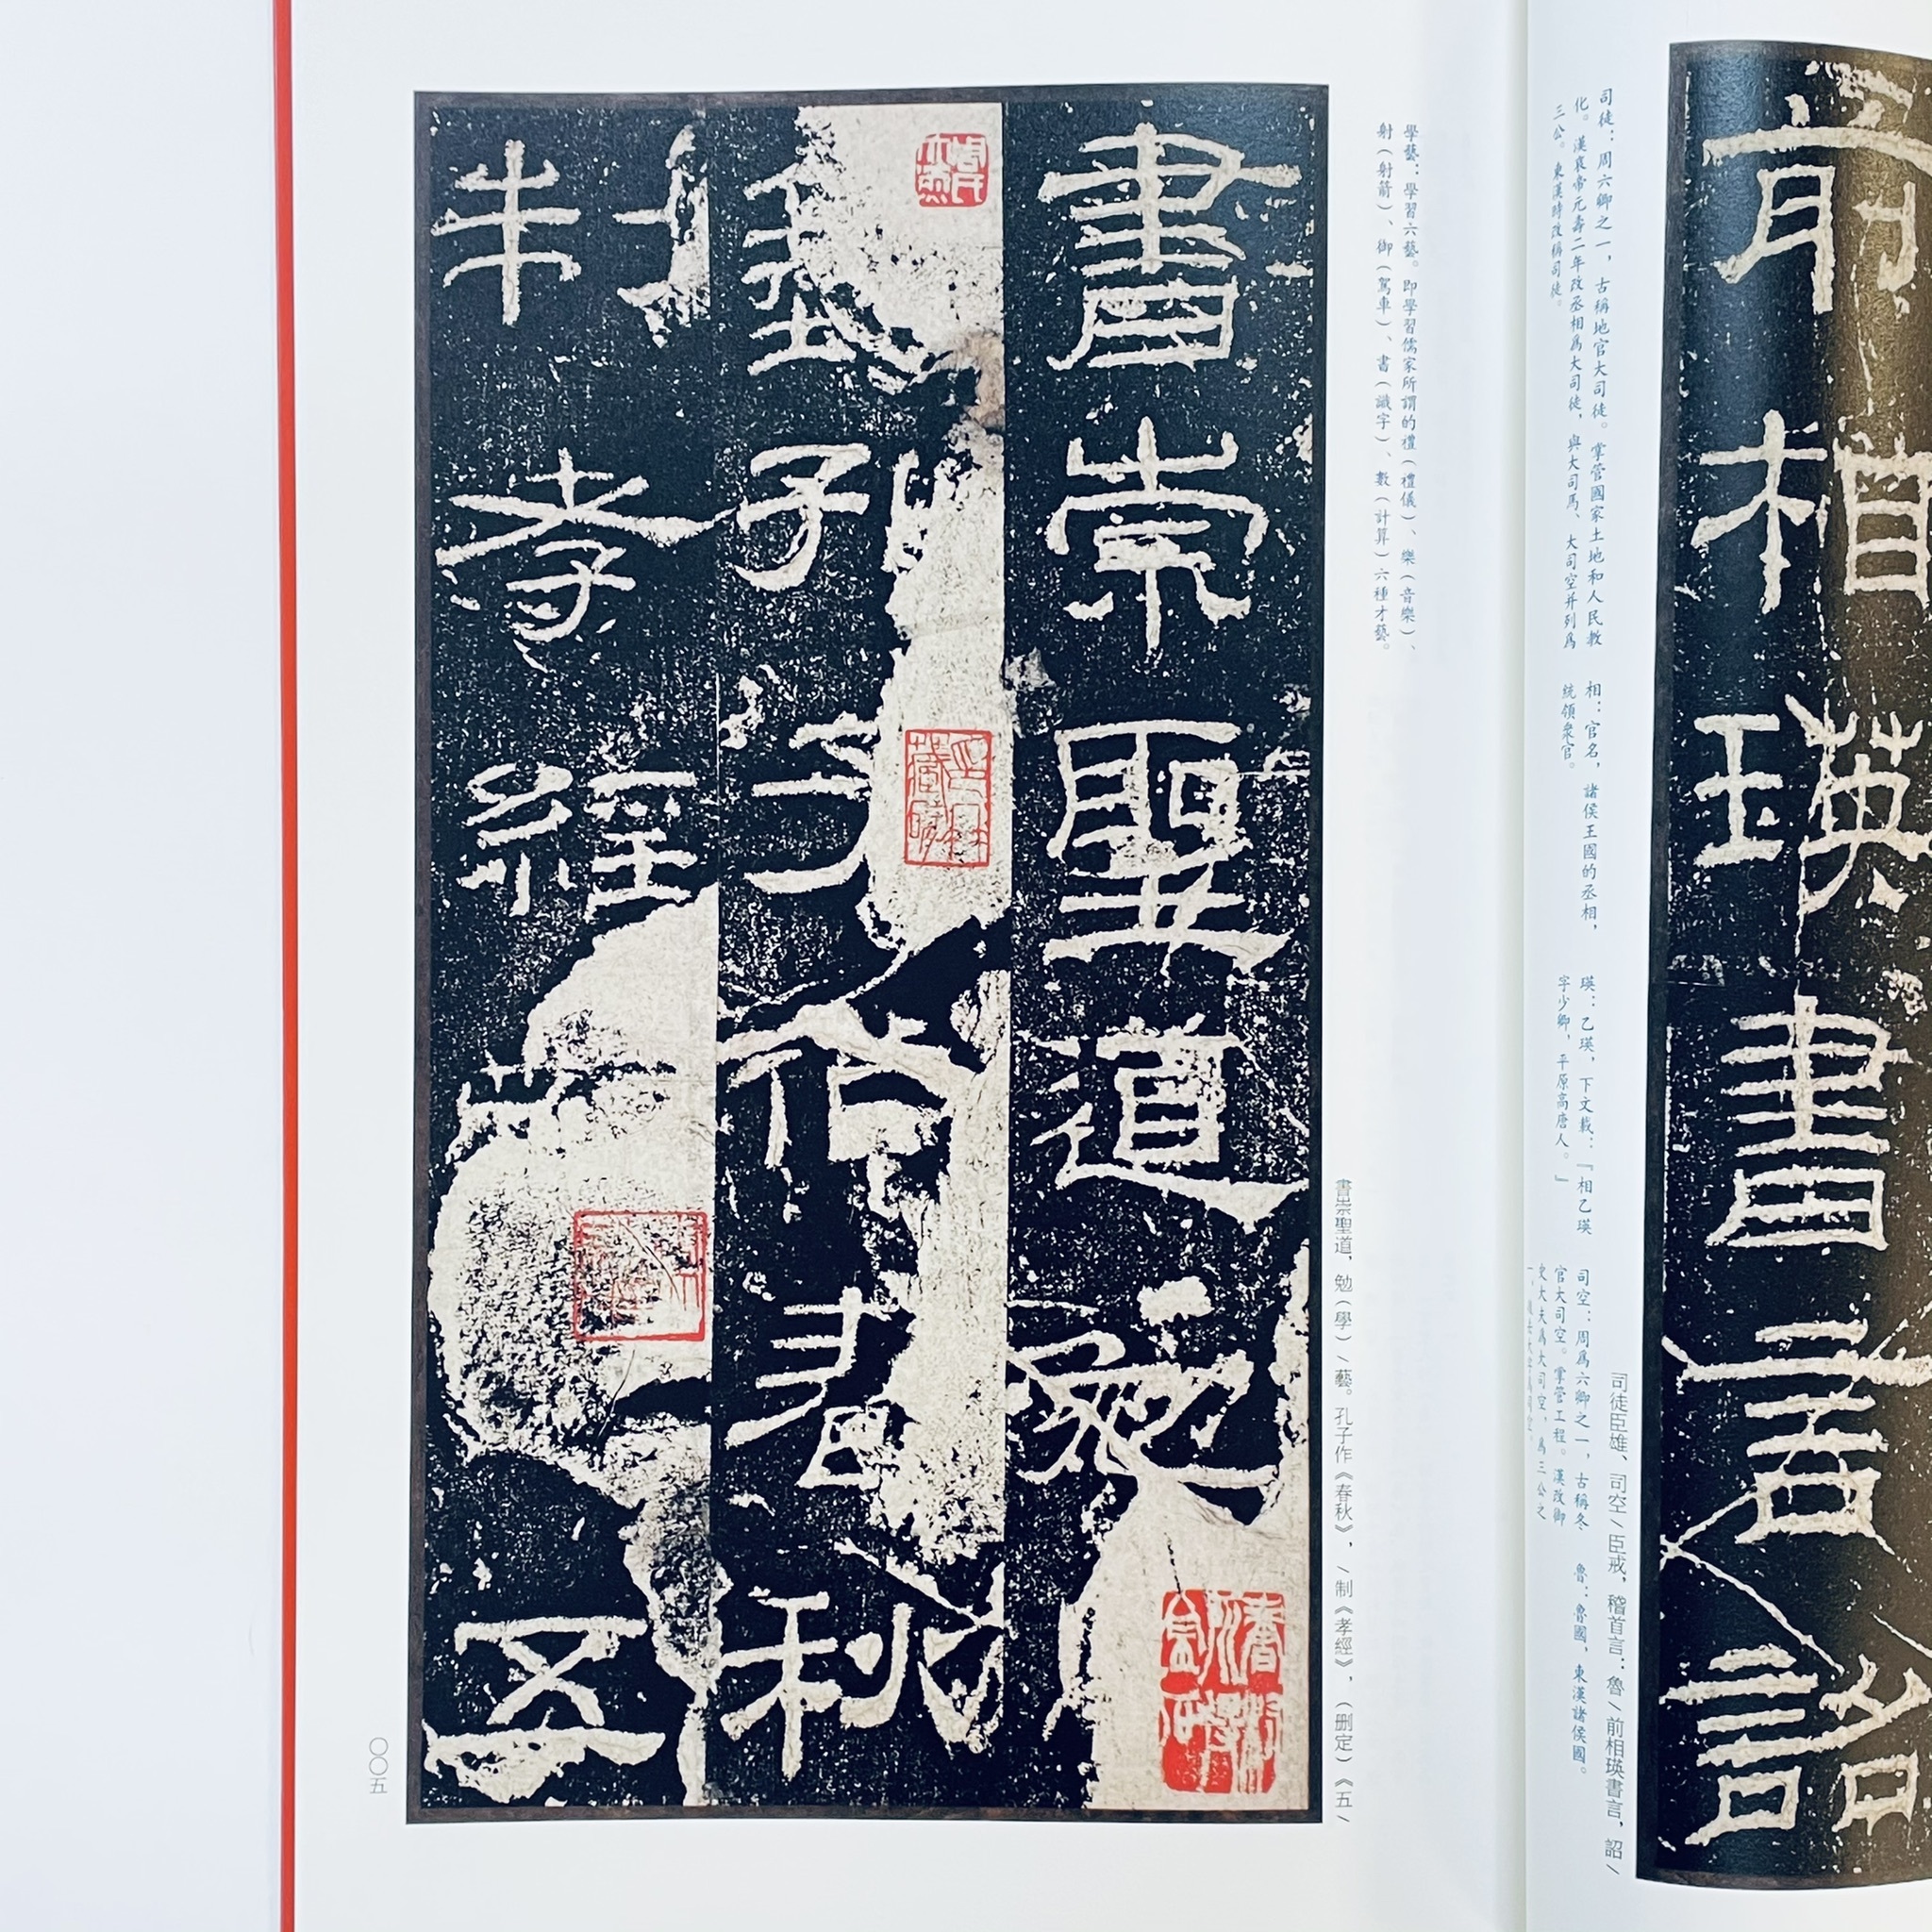 前相瑛書言詔
司徒臣雄、司空/臣戒，稽首言：魯/前相瑛書言，詔/
司徒：周六卿之一，古稱地官大司徒。掌管國家土地和人民教
化。漢哀帝元壽二年改丞相爲大司徒，與大司馬、大司空并列爲
三公。東漢時改稱司徒。
相：官名，諸侯王國的丞相，
統領衆官。
瑛：乙瑛，下文載：『相乙瑛
字少卿，平原高唐人。』
司空：周爲六卿之一，古稱冬
官大司空。掌管工程。漢改御
史大夫爲大司空，爲三公之
魯：魯國，東漢諸侯國。
學藝：學習六藝。即學習儒家所謂的禮（禮儀）、樂（音樂）、
射（射箭）、御（駕車）、書（識字）、數（計算）六種才藝。
書崇聖道，勉（學）/藝。孔子作《春秋》，/制《孝經》，（删定）《五/
書崇聖道勉
藝孔子作春秋
制孝經五
〇〇五